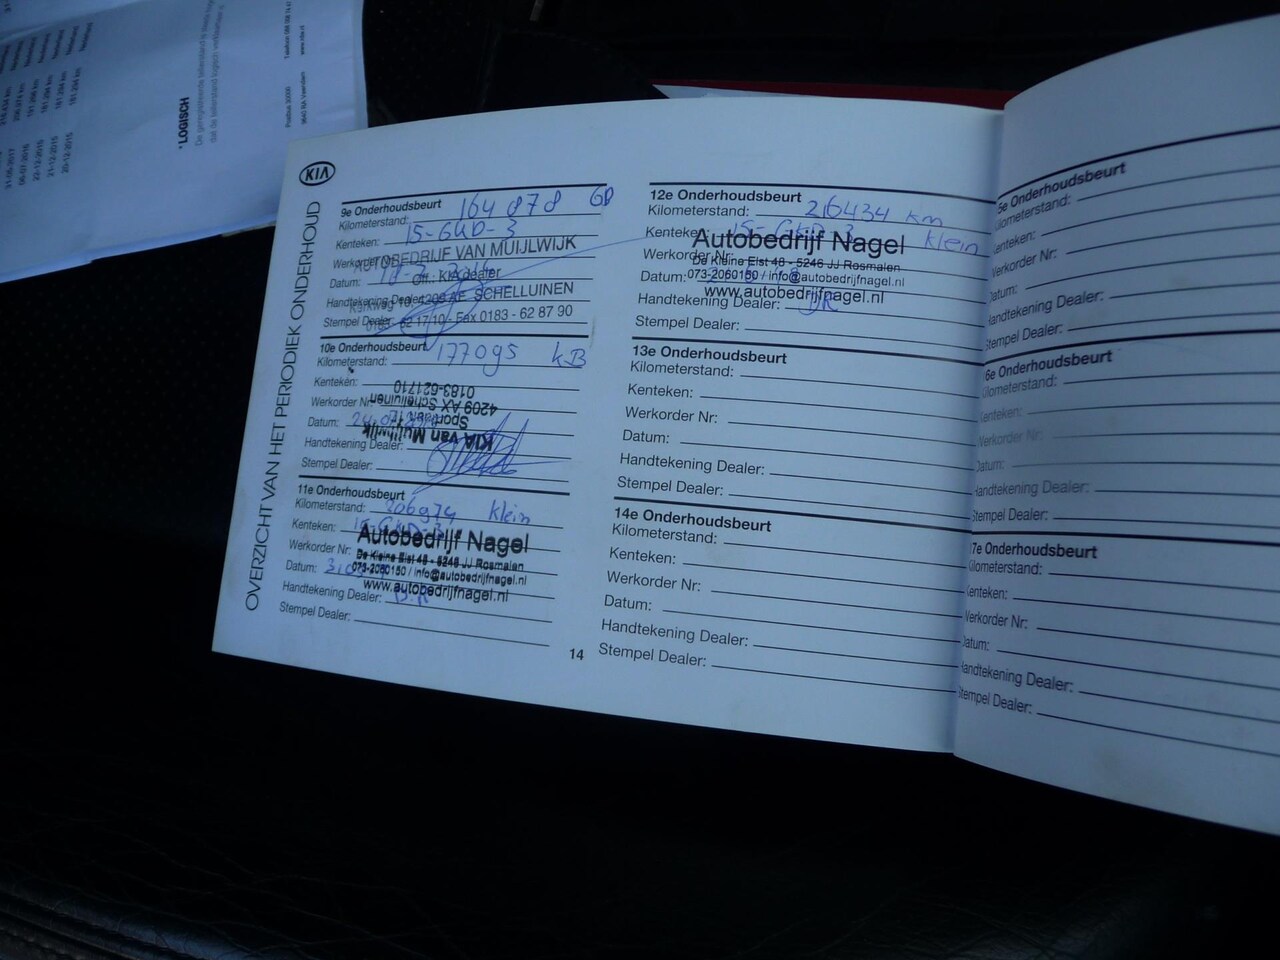 * LOGISCH
Postbus 30000
9640 RA Veendam
www.rdw.nl
06-07-2016
22-12-2015
21-12-2015
20-12-2015
161.294 km
161.294 km
KIA
OVERZICHT VAN HET PERIODIEK ONDERHOUD
9e Onderhoudsbeurt
Kilometerstand: 164878 GB
Kenteken: 15-GKD-3
Werkorder Nr:
AUTOBEDRIJF VAN MUIJLWIJK
Datum:
off. KIA dealer
Handtekening Dealer:
SCHELLUINEN
Stempel Dealer:
Fax 0183 - 62 87 90
10e Onderhoudsbeurt
Kilometerstand: 177095 KB
Kenteken:
0183-621710
Werkorder Nr:
4209 AX Schelluinen
Datum:
KIA van Muijlwijk
Handtekening Dealer:
Stempel Dealer:
11e Onderhoudsbeurt
Kilometerstand: 206974 Klein
Kenteken: 15-GKD-3
Autobedrijf Nagel
Werkorder Nr:
De Kleine Elst 48 - 5246 JJ Rosmalen
Datum:
073-2060150 / info@autobedrijfnagel.nl
www.autobedrijfnagel.nl
Handtekening Dealer:
Stempel Dealer:
14
12e Onderhoudsbeurt
Kilometerstand: 216434 km
Kenteken: 15-GKD-3 Klein
Autobedrijf Nagel
Werkorder Nr:
De Kleine Elst 48 - 5246 JJ Rosmalen
Datum:
073-2060150 / info@autobedrijfnagel.nl
www.autobedrijfnagel.nl
Handtekening Dealer:
Stempel Dealer:
13e Onderhoudsbeurt
Kilometerstand:
Kenteken:
Werkorder Nr:
Datum:
Handtekening Dealer:
Stempel Dealer:
14e Onderhoudsbeurt
Kilometerstand:
Kenteken:
Werkorder Nr:
Datum:
Handtekening Dealer:
Stempel Dealer:
5e Onderhoudsbeurt
Kilometerstand:
Kenteken:
Werkorder Nr:
Datum:
Handtekening Dealer:
Stempel Dealer:
6e Onderhoudsbeurt
Kilometerstand:
Kenteken:
Werkorder Nr:
Datum:
Handtekening Dealer:
Stempel Dealer:
7e Onderhoudsbeurt
Kilometerstand:
Kenteken:
Werkorder Nr:
Datum:
Handtekening Dealer:
Stempel Dealer: